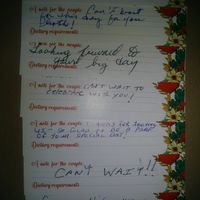 A note for the couple: Can't wait
for this day for you
both!
Dietary requirements:
A note for the couple: Looking forward to
your big day
Dietary requirements:
A note for the couple: CAN'T WAIT TO
CELEBRATE WITH YOU!
Dietary requirements:
A note for the couple: THANKS FOR INVITING
US - SO GLAD TO BE A PART
OF YOUR SPECIAL DAY!
Dietary requirements:
A note for the couple:
CAN'T WAIT!!!
Dietary requirements:
A note for the couple: